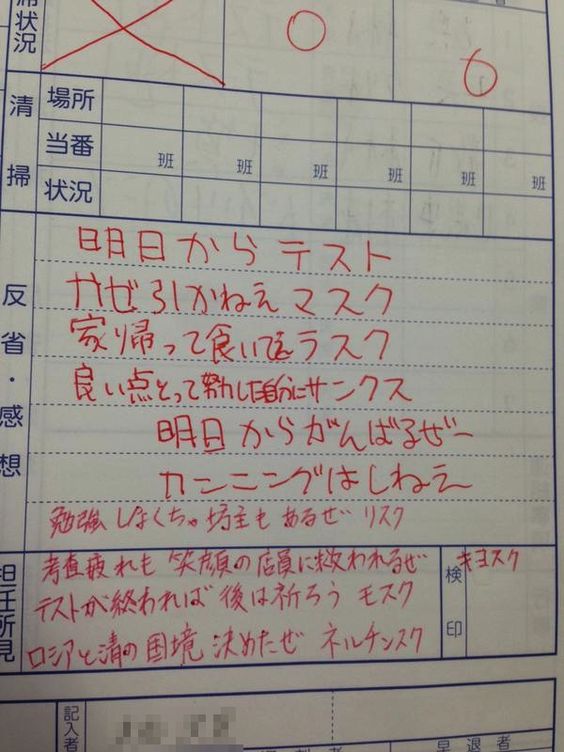 席状況
清掃
場所
当番 班 班 班 班 班 班
状況
反省・感想
明日からテスト
かぜ引かねえマスク
家り帰って食いてえラスク
良い点とって努力した自分にサンクス
明日からがんばるぜー
カンニングはしねえ
勉強しなくちゃ坊主もあるぜ リスク
担任所見
考査疲れも 笑顔の店員に救われるぜ キヨスク
テストが終われば 後は祈ろう モスク
ロシアと清の国境 決めたぜ ネルチンスク
検印
記入者
早退者